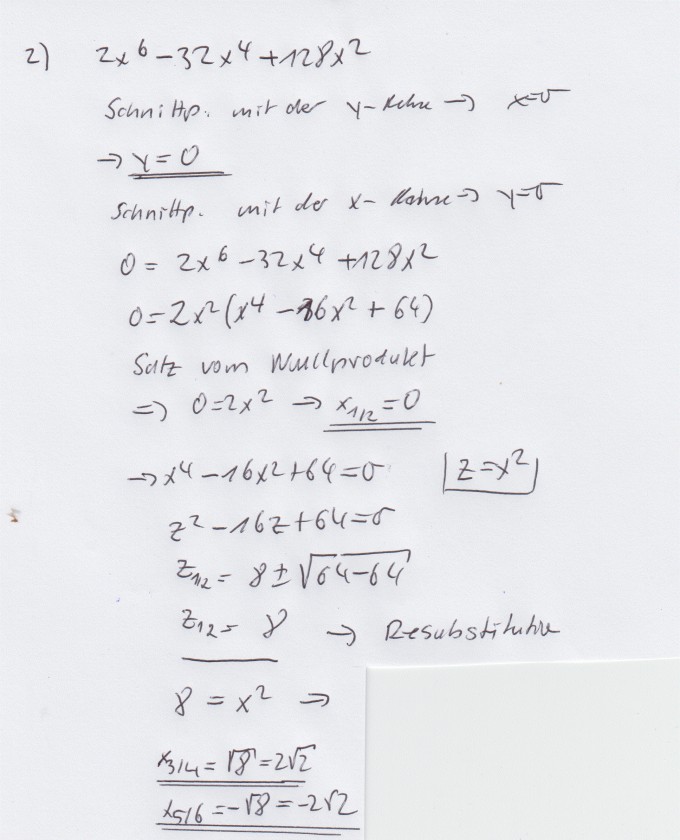 2) 2x⁶ – 32x⁴ + 128x²
Schnittp. mit der y-Achse → x=0
→ y = 0
Schnittp. mit der x-Achse → y=0
0 = 2x⁶ – 32x⁴ + 128x²
0 = 2x²(x⁴ – 16x² + 64)
Satz vom Nullprodukt
⇒ 0=2x² → x₁/₂ = 0
→ x⁴ – 16x² + 64 = 0 | z = x² |
z² – 16z + 64 = 0
z₁/₂ = 8 ± √64–64
z₁₂ = 8 → Resubstitution
8 = x² →
x₃/₄ = √8 = 2√2
x₅/₆ = –√8 = –2√2